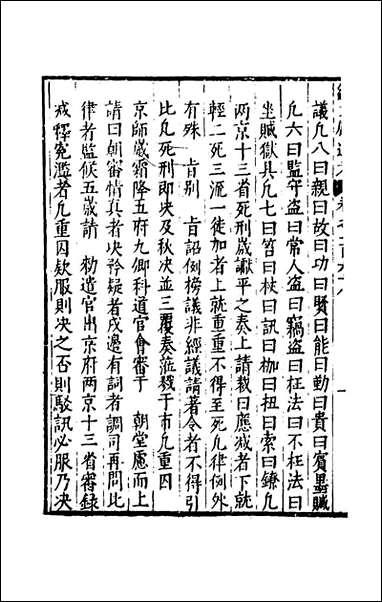 議凡八曰親曰故曰功曰賢曰能曰勤曰貴曰賓墨贓
凡六曰監守盜曰常人盜曰竊盜曰枉法曰不枉法曰
坐贓獄具凡七曰笞曰杖曰訊曰枷曰扭曰索曰鐐凡
兩京十三省死刑歲讞平之奏上請裁曰應減者下就
輕二死三流一徒加者上就重重不得至死凡律例外
有殊 旨別 旨詔例榜議非經議請著令者不得引
比凡死刑即决及秋决並三覆奏蒞戮于市凡重囚
京師歲霜降五府九卿科道官會審于 朝堂慮而上
請曰朝審情真者决矜疑者戍邊有詞者調司再問比
律者監候五歲請 勑遣官出京府兩京十三省審録
戒釋寃濫者凡重囚欵服則决之否則駁訊必服乃决